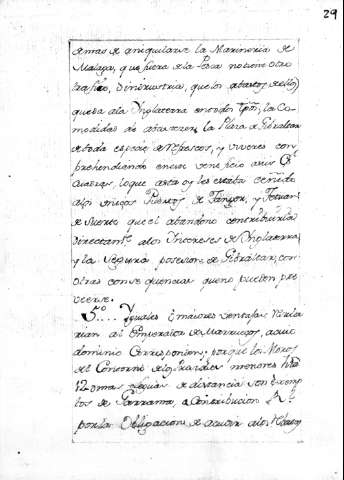 29
demas de aniquilarse la Marineria de
Malaga, que fuera de la Pesca no tiene otro
trafico, o industria, que los abastos de
queda a la Ynglaterra en todo tpo, la Co-
modidad de abastezer la Plaza de Gibraltar
de toda especie de refrescos, y viveres com-
prehendiendo en este beneficio a sus
lo que asta oy les estaba ceñido
a los unicos Puertos de Tanger, y Tetuan
de suerte que el abandono contribuiria
directamte a los Yntereses de Ynglaterra,
y la segura posesion de Gibraltar, con
otras consequencias que no pueden pre
veerse.
5o.... Yguales o maiores ventajas
rian al Emperador de Marruegos, a cuio
dominio corresponden; porque los Moros
del Contorno de los Presidios menores
12 o mas leguas de distancia son exemp
tos de Garrama, o Contribucion Rl
por la obligacion de acudir a los